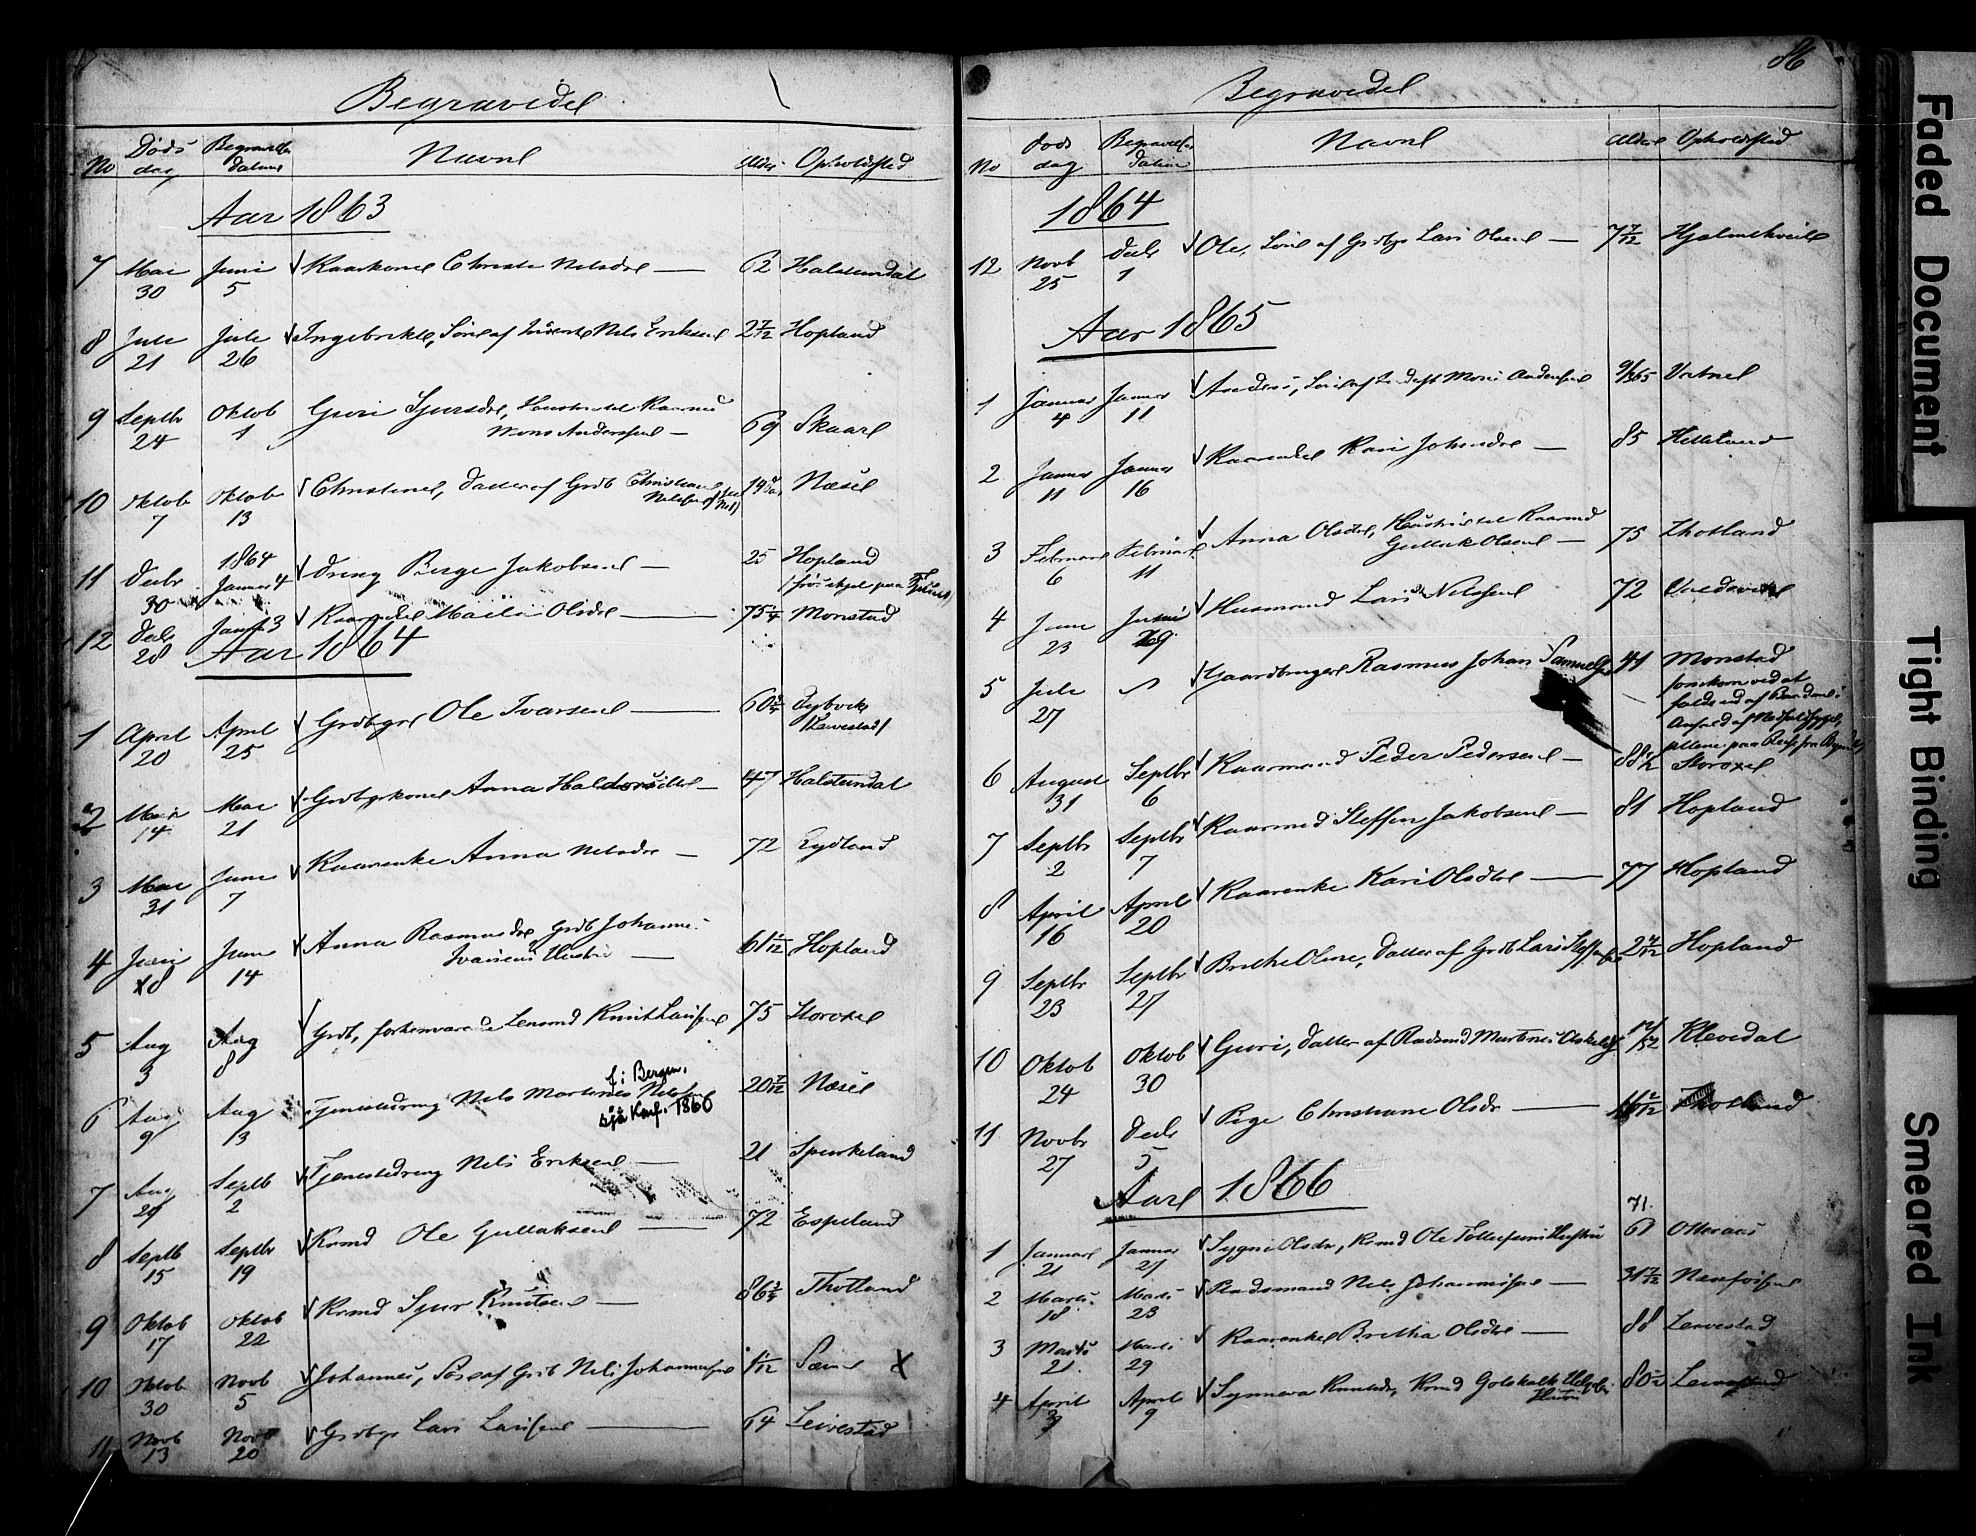 Begravede
No Døds dag Begravelses datum Navne Alder Opholdssted
Aar 1863
7 Mai 30 Juni 5 Kaarkone Christi Nilsdtr — 62 Halsteindal
8 Juli 21 Juli 26 Ingebrikt, Søn af Nils Eriksen 2 7/12 Hopland
9 Septbr 24 Oktob 1 Guri Sjursdtr, Hustru til Kaarmd
Mons Anderssen — 69 Skaare
10 Oktob 7 Oktob 13 Christine, Datter af Grdb Christian
Nilssen 19 Næse
11 Decbr 30 1864 Januar 4 Dreng Berge Jakobsen — 25 Hopland
12 Decbr 28 Jan 3 Kaarenke Marita Olsdtr — 75 1/4 Monstad
Aar 1864
1 April 20 April 25 Grdbgr Ole Ivarsen — 60 3/4 Eybvik
/Leivestad/
2 Mai 14 Mai 21 Grdbgrkone Anna Haldorsdtr — 47 Halsteindal
3 Mai 31 Juni 7 Kaarenke Anna Nilsdtr — 72 Eydland
4 Juni 8 Juni 14 Anna Rasmusdtr, Grdb Johannes
Ivarsens Hustru — 61 Hopland
5 Aug 3 Aug 8 Grdb, forhenværende Lensmd Knut Larssen 75 Storoxel
f. i Bergen.
6 Aug 9 Aug 13 Tjenestedreng Nils Martines Nilssen 20 7/12 Næse
sjå Konf. 1860
7 Aug 29 Septb 2 Tjenestedreng Nils Eriksen — 21 Spurkeland
8 Septb 15 Septbr 19 Krmd Ole Gullaksen — 72 Espeland
9 Oktob 17 Oktob 22 Krmd Sjur Knutsen — 86 3/4 Thotland
10 Oktob 30 Novb 5 Johannes, Søn af Grdb Nils Johannessen 1/12 Sæm X
11 Novb 13 Novb 20 Grdbgr Lars Larssen — 64 Leivestad
86
Begravede
No Døds dag Begravelses datum Navne Alder Opholdssted
1864
12 Novb 25 Decbr 1 Ole, Søn af Grdbgr Lars Olsen — 7 7/12 Hjelmtveit
Aar 1865
1 Januar 4 Januar 11 Anders, Søn af Mons Anderssen 9/365 Vatne
2 Januar 11 Januar 16 Kaarenke Kari Johansdtr — 85 Helleland
3 Februar 6 Februar 11 Anna Olsdtr, Hustru til Kaarmd
Gullak Olsen — 75 Thotland
4 Juni 23 Juni 29 Husmand Lars Nilssen 72
5 Juli 27 Gaardbruger Rasmus Johan Samuelsen 41 Monstad
omkom ved at
falde ud af Baaden i
Anfald af Nedfaldssyge,
6 August 31 Septbr 6 Kaarmand Peder Pedersen — 88 1/2 Storoxel
7 Septbr 2 Septbr 7 Kaarmd Steffen Jakobsen — 81 Hopland
8 April 16 April 20 Kaarenke Kari Olsdtr — 77 Hopland
9 Septbr 23 Septbr 27 Brithe Oline, Datter af Grdb Lars Steffensen 2 Hopland
10 Oktob 24 Oktob 30 Guri, Datter af Radsmd Martines Askeldsen 12/52 Klevedal
11 Novbr 27 Decbr 5 Pige Christiane Olsdtr — Thotland
Aar 1866
1 Januar 21 Januar 27 Sygni Olsdtr, Krmd Ole Tollefsens Hustru 71. 61 Otteraas
2 Marts 18 Marts 23 Radsmand Nils Johannessen — 31 7/12
3 Marts 21 Marts 29 Kaarenke Britha Olsdtr — 88 Leivestad
4 April 3 April 9 Synneva Knutsdtr, Krmd Gotskalk Helges
Hustru 80 Leivestad
Faded Document
Tight Binding
Smeared Ink